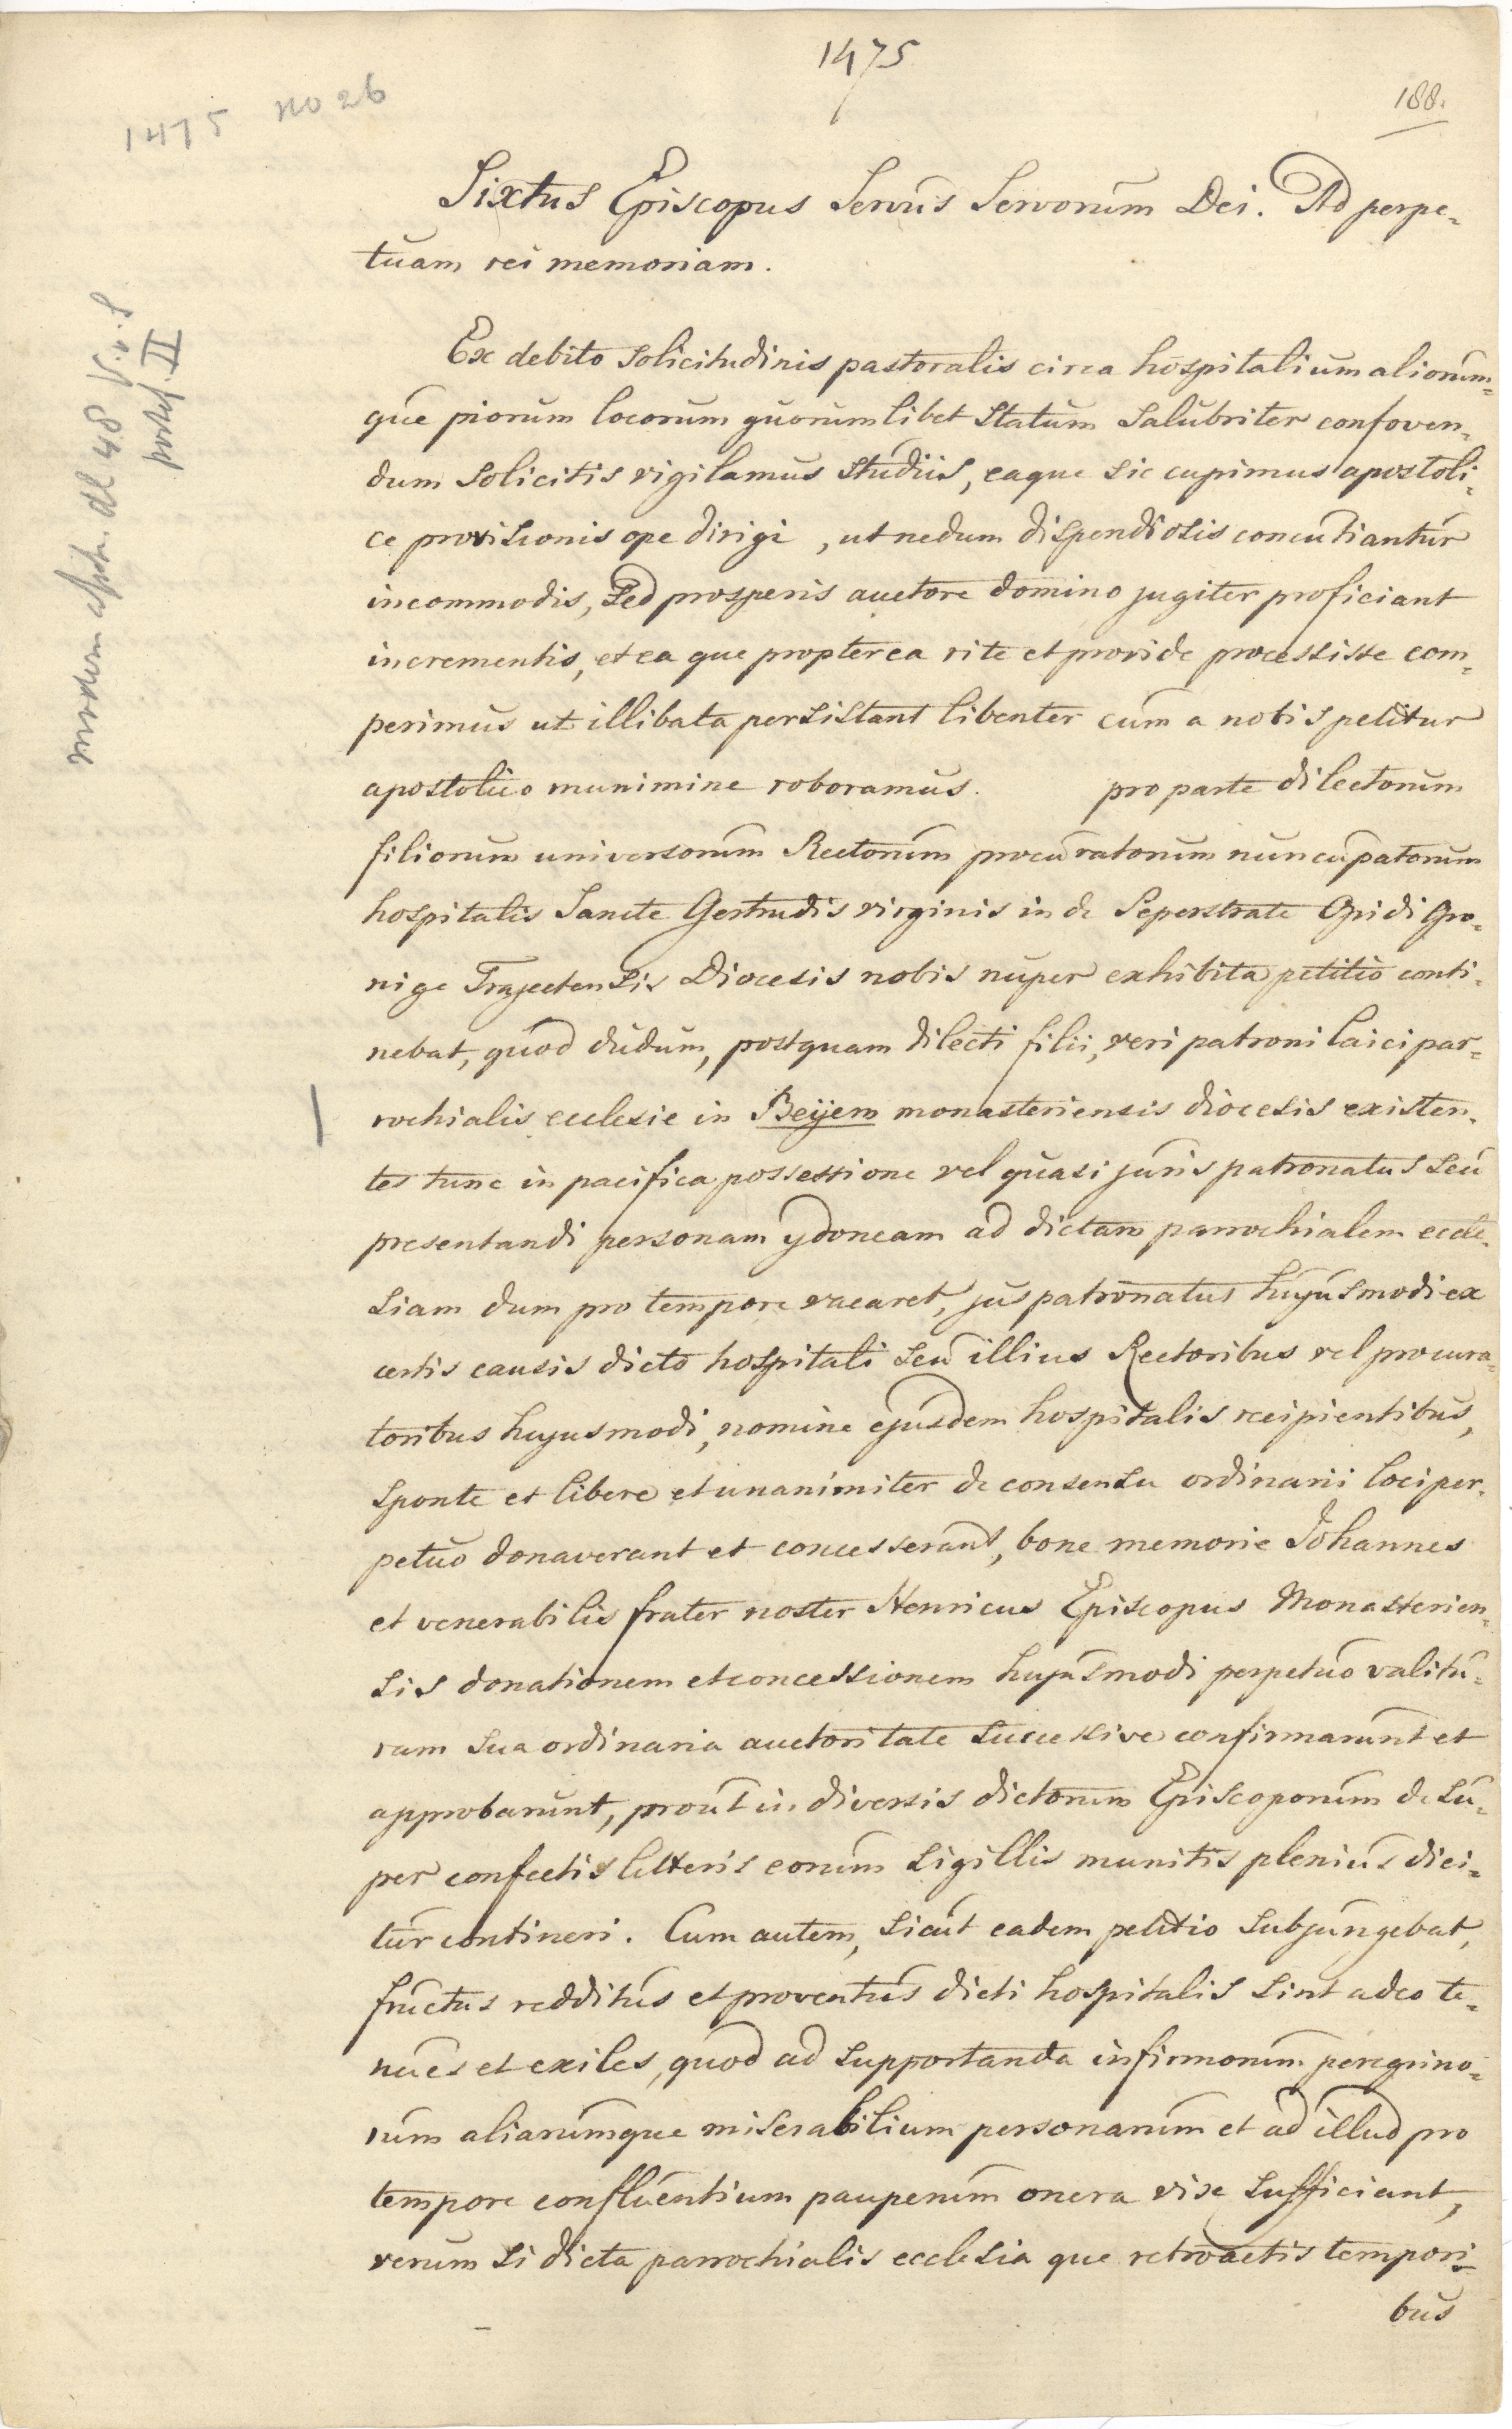 1475
188.
1475 no 26
Sixtus Episcopus Servus Servorum Dei. Ad perpe-
tuam rei memoriam.
Ex debito solicitudinis pastoralis circa hospitalium aliorum-
que piorum locorum quorumlibet statum salubriter confoven-
dum solicitis vigilamus studiis, eaque sic cupimus apostoli-
ce provisionis ope dirigi, ut nedum dispendiosis concutiantur
incommodis, sed prosperis auctore domino jugiter proficiant
incrementis, et ea que propterea rite et provide processisse com-
perimus ut illibata persistant libenter cum a nobis petitur
apostolico munimine roboramus. pro parte dilectorum
filiorum universorum Rectorum procuratorum nuncupatorum
hospitalis Sancte Gertrudis virginis in de Peperstrate Opidi Gro-
nige Trajectensis Diocesis nobis nuper exhibita petitio conti-
nebat, quod dudum, postquam dilecti filii, veri patroni laici par-
rochialis ecclesie in Beijem monasteriensis diocesis existen-
tes tunc in pacifica possessione vel quasi juris patronatus seu
presentandi personam ydoneam ad dictam parrochialem eccle-
siam dum pro tempore vacaret, jus patronatus hujusmodi ex
certis causis dicto hospitali seu illius Rectoribus vel procura-
toribus hujusmodi, nomine ejusdem hospitalis recipientibus,
sponte et libere et unanimiter de consensu ordinarii loci per-
petuo donaverant et concesserant, bone memorie Johannes
et venerabilis frater noster Henricus Episcopus Monasterien-
sis donationem et concessionem hujusmodi perpetuo valitu-
ram sua ordinaria auctoritate successive confirmarunt et
approbarunt, prout in diversis dictorum Episcoporum desu-
per confectis litteris eorum sigillis munitis plenius dici-
tur contineri. Cum autem, sicut eadem petitio subjungebat,
fructus redditus et proventus dicti hospitalis sint adeo te-
nues et exiles, quod ad supportanda infirmorum peregrino-
rum aliarumque miserabilium personarum et ad illud pro
tempore confluentium pauperum onera vix sufficiant,
verum si dicta parrochialis ecclesia que retroactis tempori-
bus